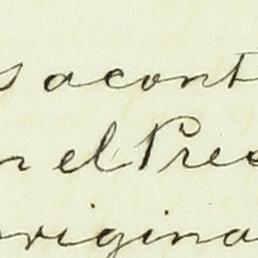 s acont
n el Pres
origina